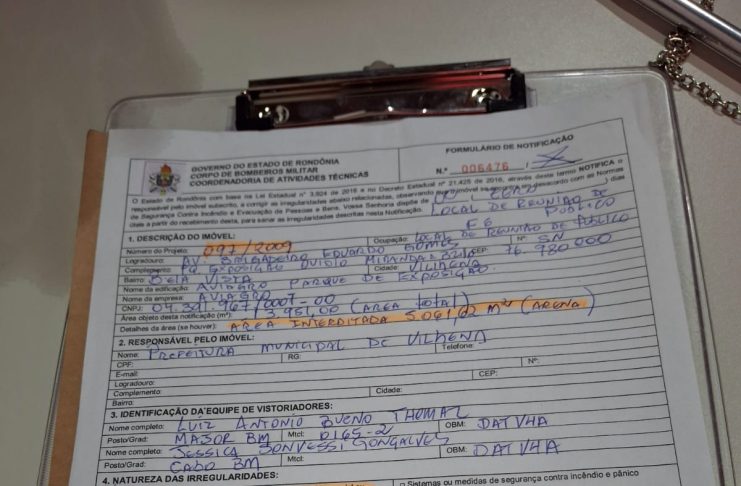 GOVERNO DO ESTADO DE RONDÔNIA
CORPO DE BOMBEIROS MILITAR
COORDENADORIA DE ATIVIDADES TÉCNICAS
FORMULÁRIO DE NOTIFICAÇÃO
N.º 006476 /
O Estado de Rondônia com base na Lei Estadual nº 3.924 de 2016 e no Decreto Estadual nº 21.425 de 2016, através deste termo NOTIFICA o
responsável pelo imóvel subscrito, a corrigir as irregularidades abaixo relacionadas, observando que o imóvel se em desacordo com as Normas
de Segurança Contra Incêndio e Evacuação de Pessoas e Bens. Vossa Senhoria dispõe de ) dias
úteis a partir do recebimento desta, para sanar as irregularidades descritas nesta Notificação.
LOCAL DE REUNIÃO DE PÚBLICO
F6
1. DESCRIÇÃO DO IMÓVEL:
Número do Projeto: 097/2009 Ocupação: LOCAL DE REUNIÃO DE PÚBLICO
Logradouro: AV. BRIGADEIRO EDUARDO GOMES Nº: SN
Complemento: PQ. EXPOSIÇÃO OVIDIO MIRANDA BRITO CEP: 76.980000
Bairro: BELA VISTA Cidade: VILHENA
Nome da edificação: AVIAGRO PARQUE DE EXPOSIÇÃO.
Nome da empresa: AVIAGRO
CNPJ: 04.391.967/0001-00
Área objeto desta notificação (m²): 13.951,00 (ÁREA TOTAL)
Detalhes da área (se houver): ÁREA INTERDITADA 5.061,02 m² (ARENA)
2. RESPONSÁVEL PELO IMÓVEL:
Nome: PREFEITURA MUNICIPAL DE VILHENA
CPF: RG: Telefone:
E-mail:
Logradouro: Nº:
Complemento: CEP:
Bairro: Cidade:
3. IDENTIFICAÇÃO DA EQUIPE DE VISTORIADORES:
Nome completo: LUIZ ANTONIO BUENO THOMAZ
Posto/Grad: MAJOR BM Mtct: 0165-2 OBM: DATVHA
Nome completo: JESSICA BONVESSI GONÇALVES
Posto/Grad: CABO BM Mtct: OBM: DATVHA
4. NATUREZA DAS IRREGULARIDADES:
Sistemas ou medidas de segurança contra incêndio e pânico